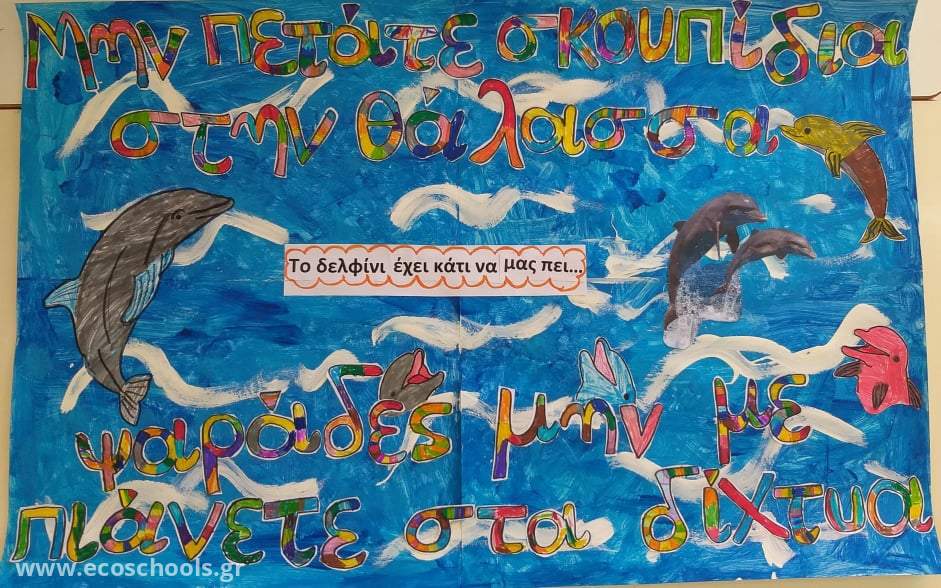 Μην πετάτε σκουπίδια
στην θάλασσα
Το δελφίνι έχει κάτι να μας πει...
ψαράδες μην με
πιάνετε στα δίχτυα
www.ecoschools.gr